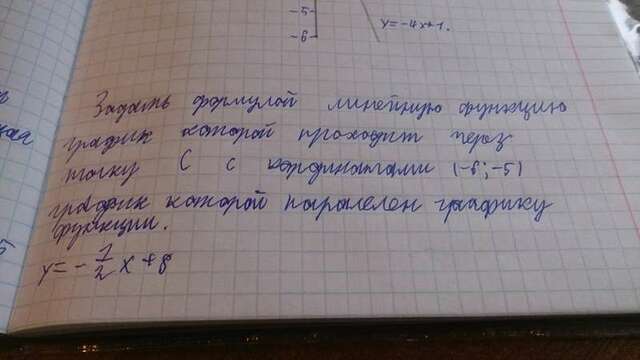 -5
-6
y=-4x+1.
Задать формулой линейную функцию
график которой проходит через
точку C с координатами (-6;-5)
график которой паралелен графику
функции.
y=-1/2x+8
5